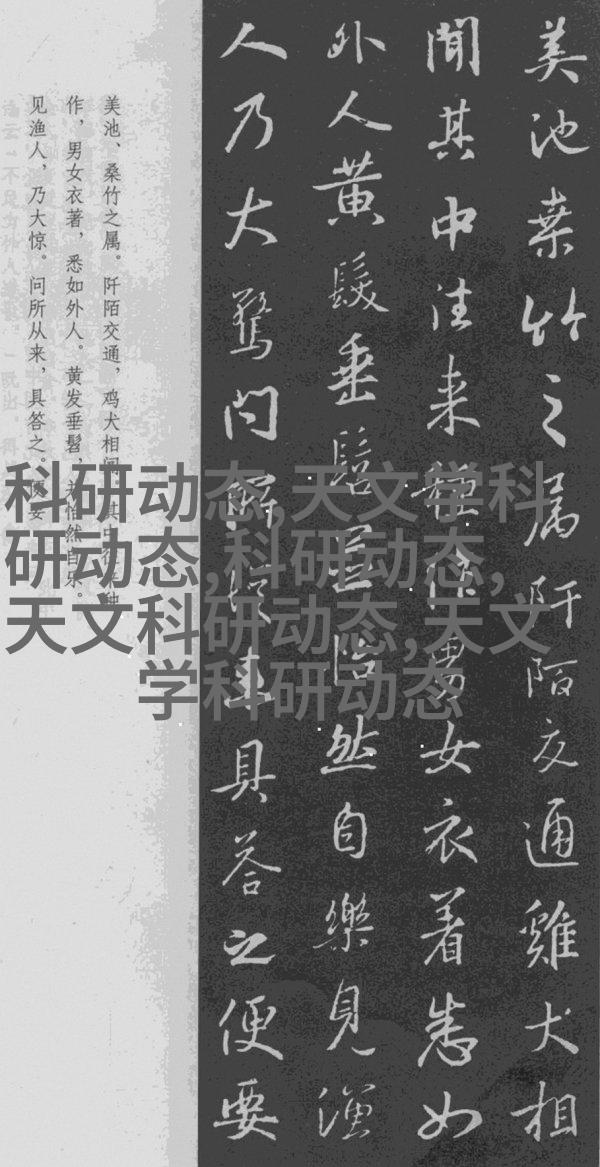 美池桒竹之属阡陌交通雞犬相
聞其中往来種作男女衣着悉如
外人黄髮垂髫並怡然自樂見漁
人乃大驚问所從来具答之便要
美池、桑竹之属。阡陌交通，鸡犬相闻。其中往来种
作，男女衣著，悉如外人。黄发垂髫，并怡然自乐。
见渔人，乃大惊。问所从来，具答之。便要
科研动态,天文学科
研动态,科研动态,
天文科研动态,天文
学科研动态